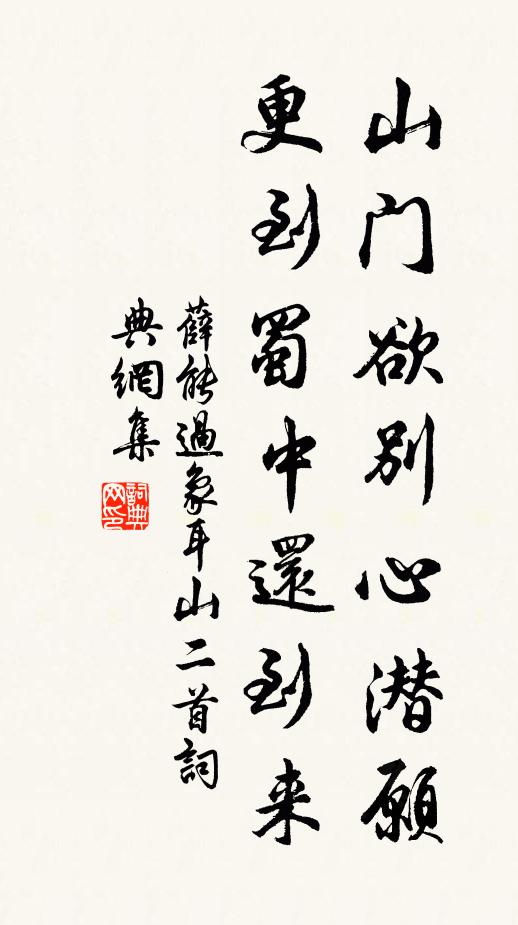 山门欲别心潜願
更到蜀中還到来
薛能過象耳山二首詞
典網集
詞典网印